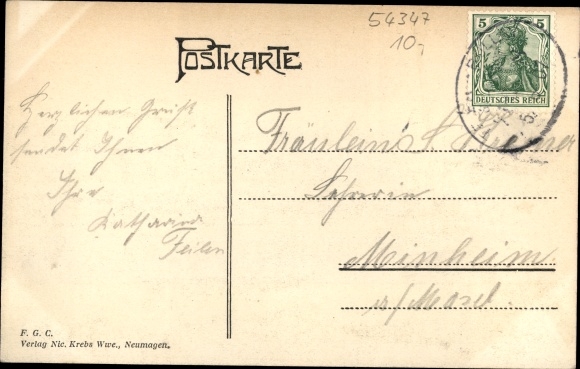 54347
10,-
5 5
DEUTSCHES REICH
POSTKARTE
Herzlichen Gruß
sendet Ihnen
Ihre
Katharina
Feilen
Fräulein
Lehrerin
Minheim
a/Mosel.
F. G. C.
Verlag Nic. Krebs Wwe., Neumagen.